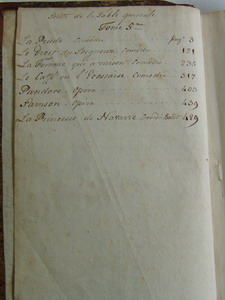 Suite de la Table générale
Tome 5me
La Prude Comédie pag. 3
Le Droit du Seigneur Comédie 121
La Femme qui a raison Comédie 235
Le Café ou l'Ecossaise Comédie 317
Pandore Opera 403
Samson Opera 439
La Princesse de Navarre Comédie Ballet 489